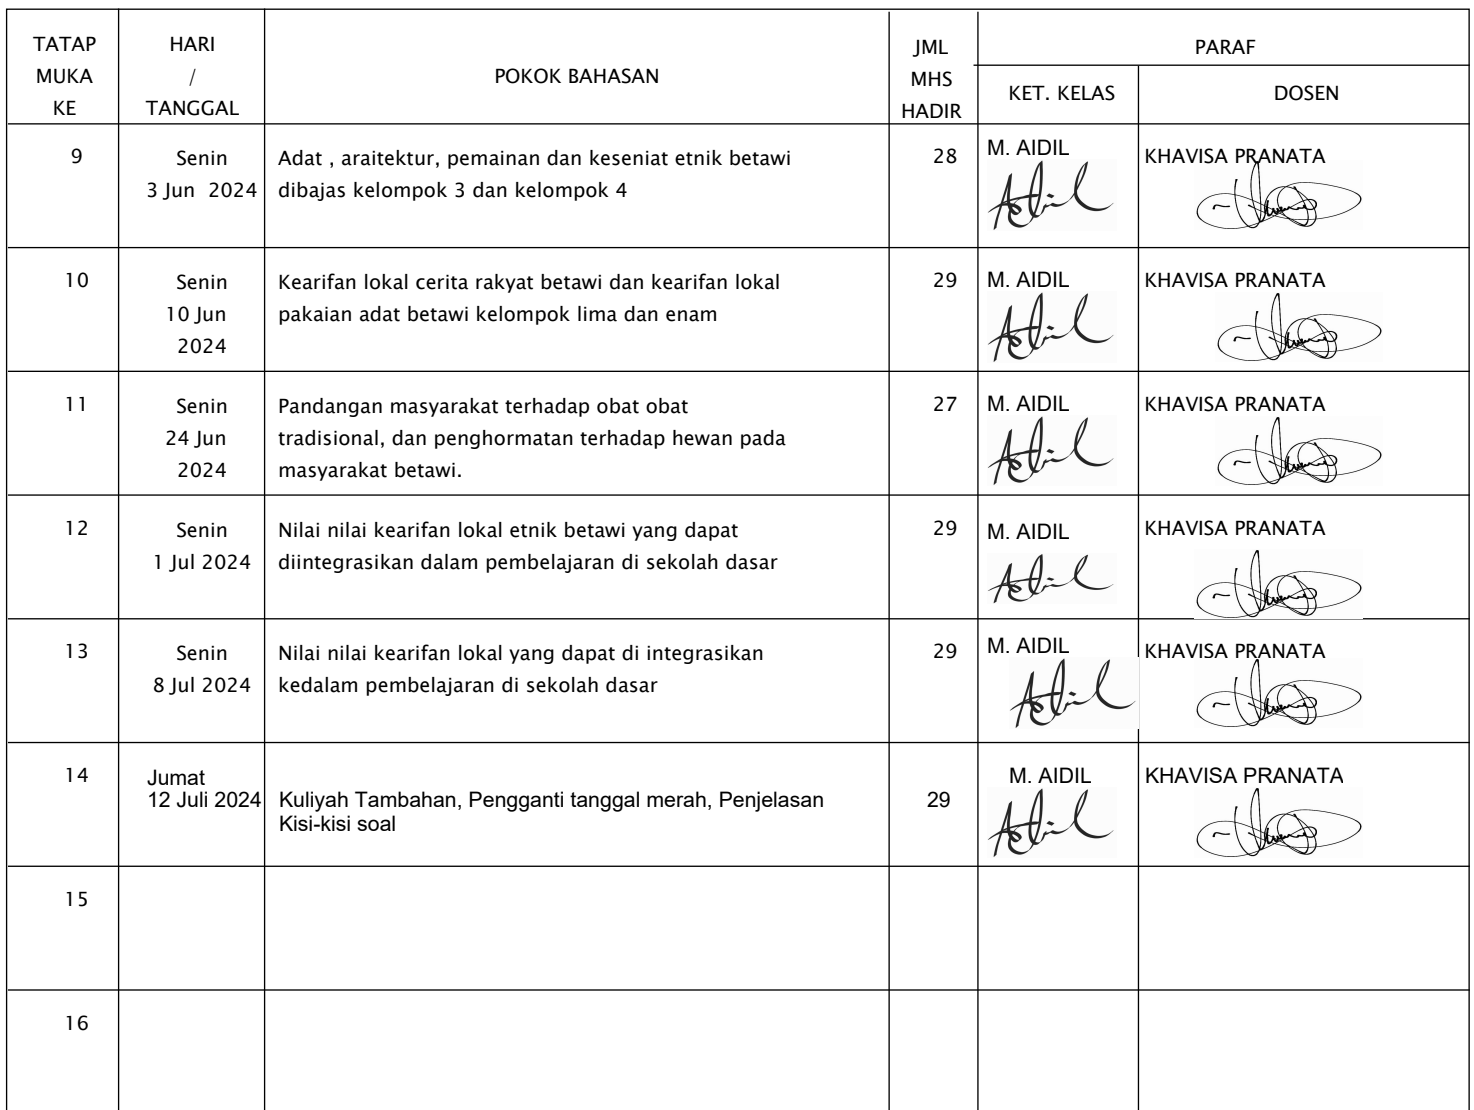 TATAP
MUKA
KE
HARI
/
TANGGAL
POKOK BAHASAN
JML
MHS
HADIR
PARAF
KET. KELAS
DOSEN
9
Senin
3 Jun 2024
Adat , araitektur, pemainan dan keseniat etnik betawi
dibajas kelompok 3 dan kelompok 4
28
M. AIDIL
KHAVISA PRANATA
10
Senin
10 Jun
2024
Kearifan lokal cerita rakyat betawi dan kearifan lokal
pakaian adat betawi kelompok lima dan enam
29
M. AIDIL
KHAVISA PRANATA
11
Senin
24 Jun
2024
Pandangan masyarakat terhadap obat obat
tradisional, dan penghormatan terhadap hewan pada
masyarakat betawi.
27
M. AIDIL
KHAVISA PRANATA
12
Senin
1 Jul 2024
Nilai nilai kearifan lokal etnik betawi yang dapat
diintegrasikan dalam pembelajaran di sekolah dasar
29
M. AIDIL
KHAVISA PRANATA
13
Senin
8 Jul 2024
Nilai nilai kearifan lokal yang dapat di integrasikan
kedalam pembelajaran di sekolah dasar
29
M. AIDIL
KHAVISA PRANATA
14
Jumat
12 Juli 2024
Kuliyah Tambahan, Pengganti tanggal merah, Penjelasan
Kisi-kisi soal
29
M. AIDIL
KHAVISA PRANATA
15
16